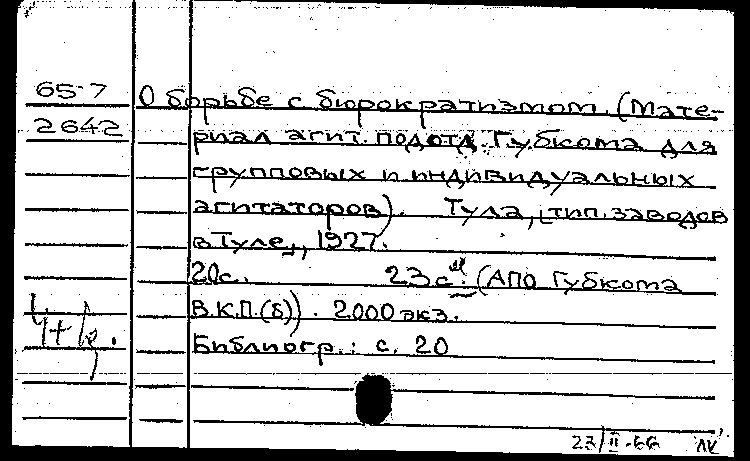 65-7
2642
О борьбе с бюрократизмом. (Мате-
риал агит. подотд. Губкома для
групповых и индивидуальных
агитаторов). Тула, [тип. заводов
в Туле], 1927.
20с. 23 см. (АПО Губкома
В.К.П.(б)). 2000 экз.
Библиогр.: с. 20
23/II-66